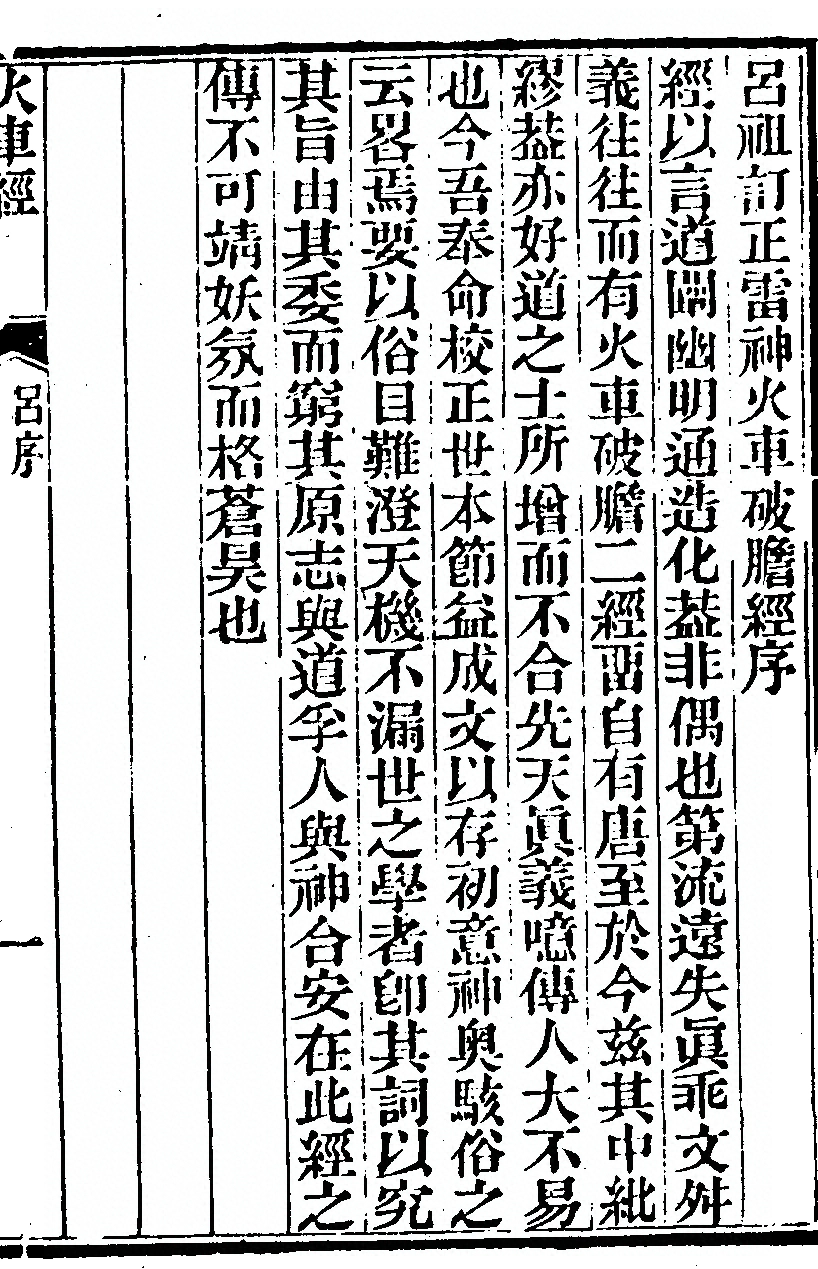 呂祖訂正雷神火車破膽經序
經以言道闢幽明通造化葢非偶也第流遠失眞乖文舛
義往往而有火車破膽二經畱自有唐至於今茲其中紕
繆葢亦好道之士所增而不合先天眞義噫傳人大不易
也今吾奉命校正世本節益成文以存初意神奥駭俗之
云畧焉要以俗目難澄天機不漏世之學者卽其詞以究
其旨由其委而窮其原志與道孚人與神合安在此經之
傳不可靖妖氛而格蒼昊也
火車經
呂序
一